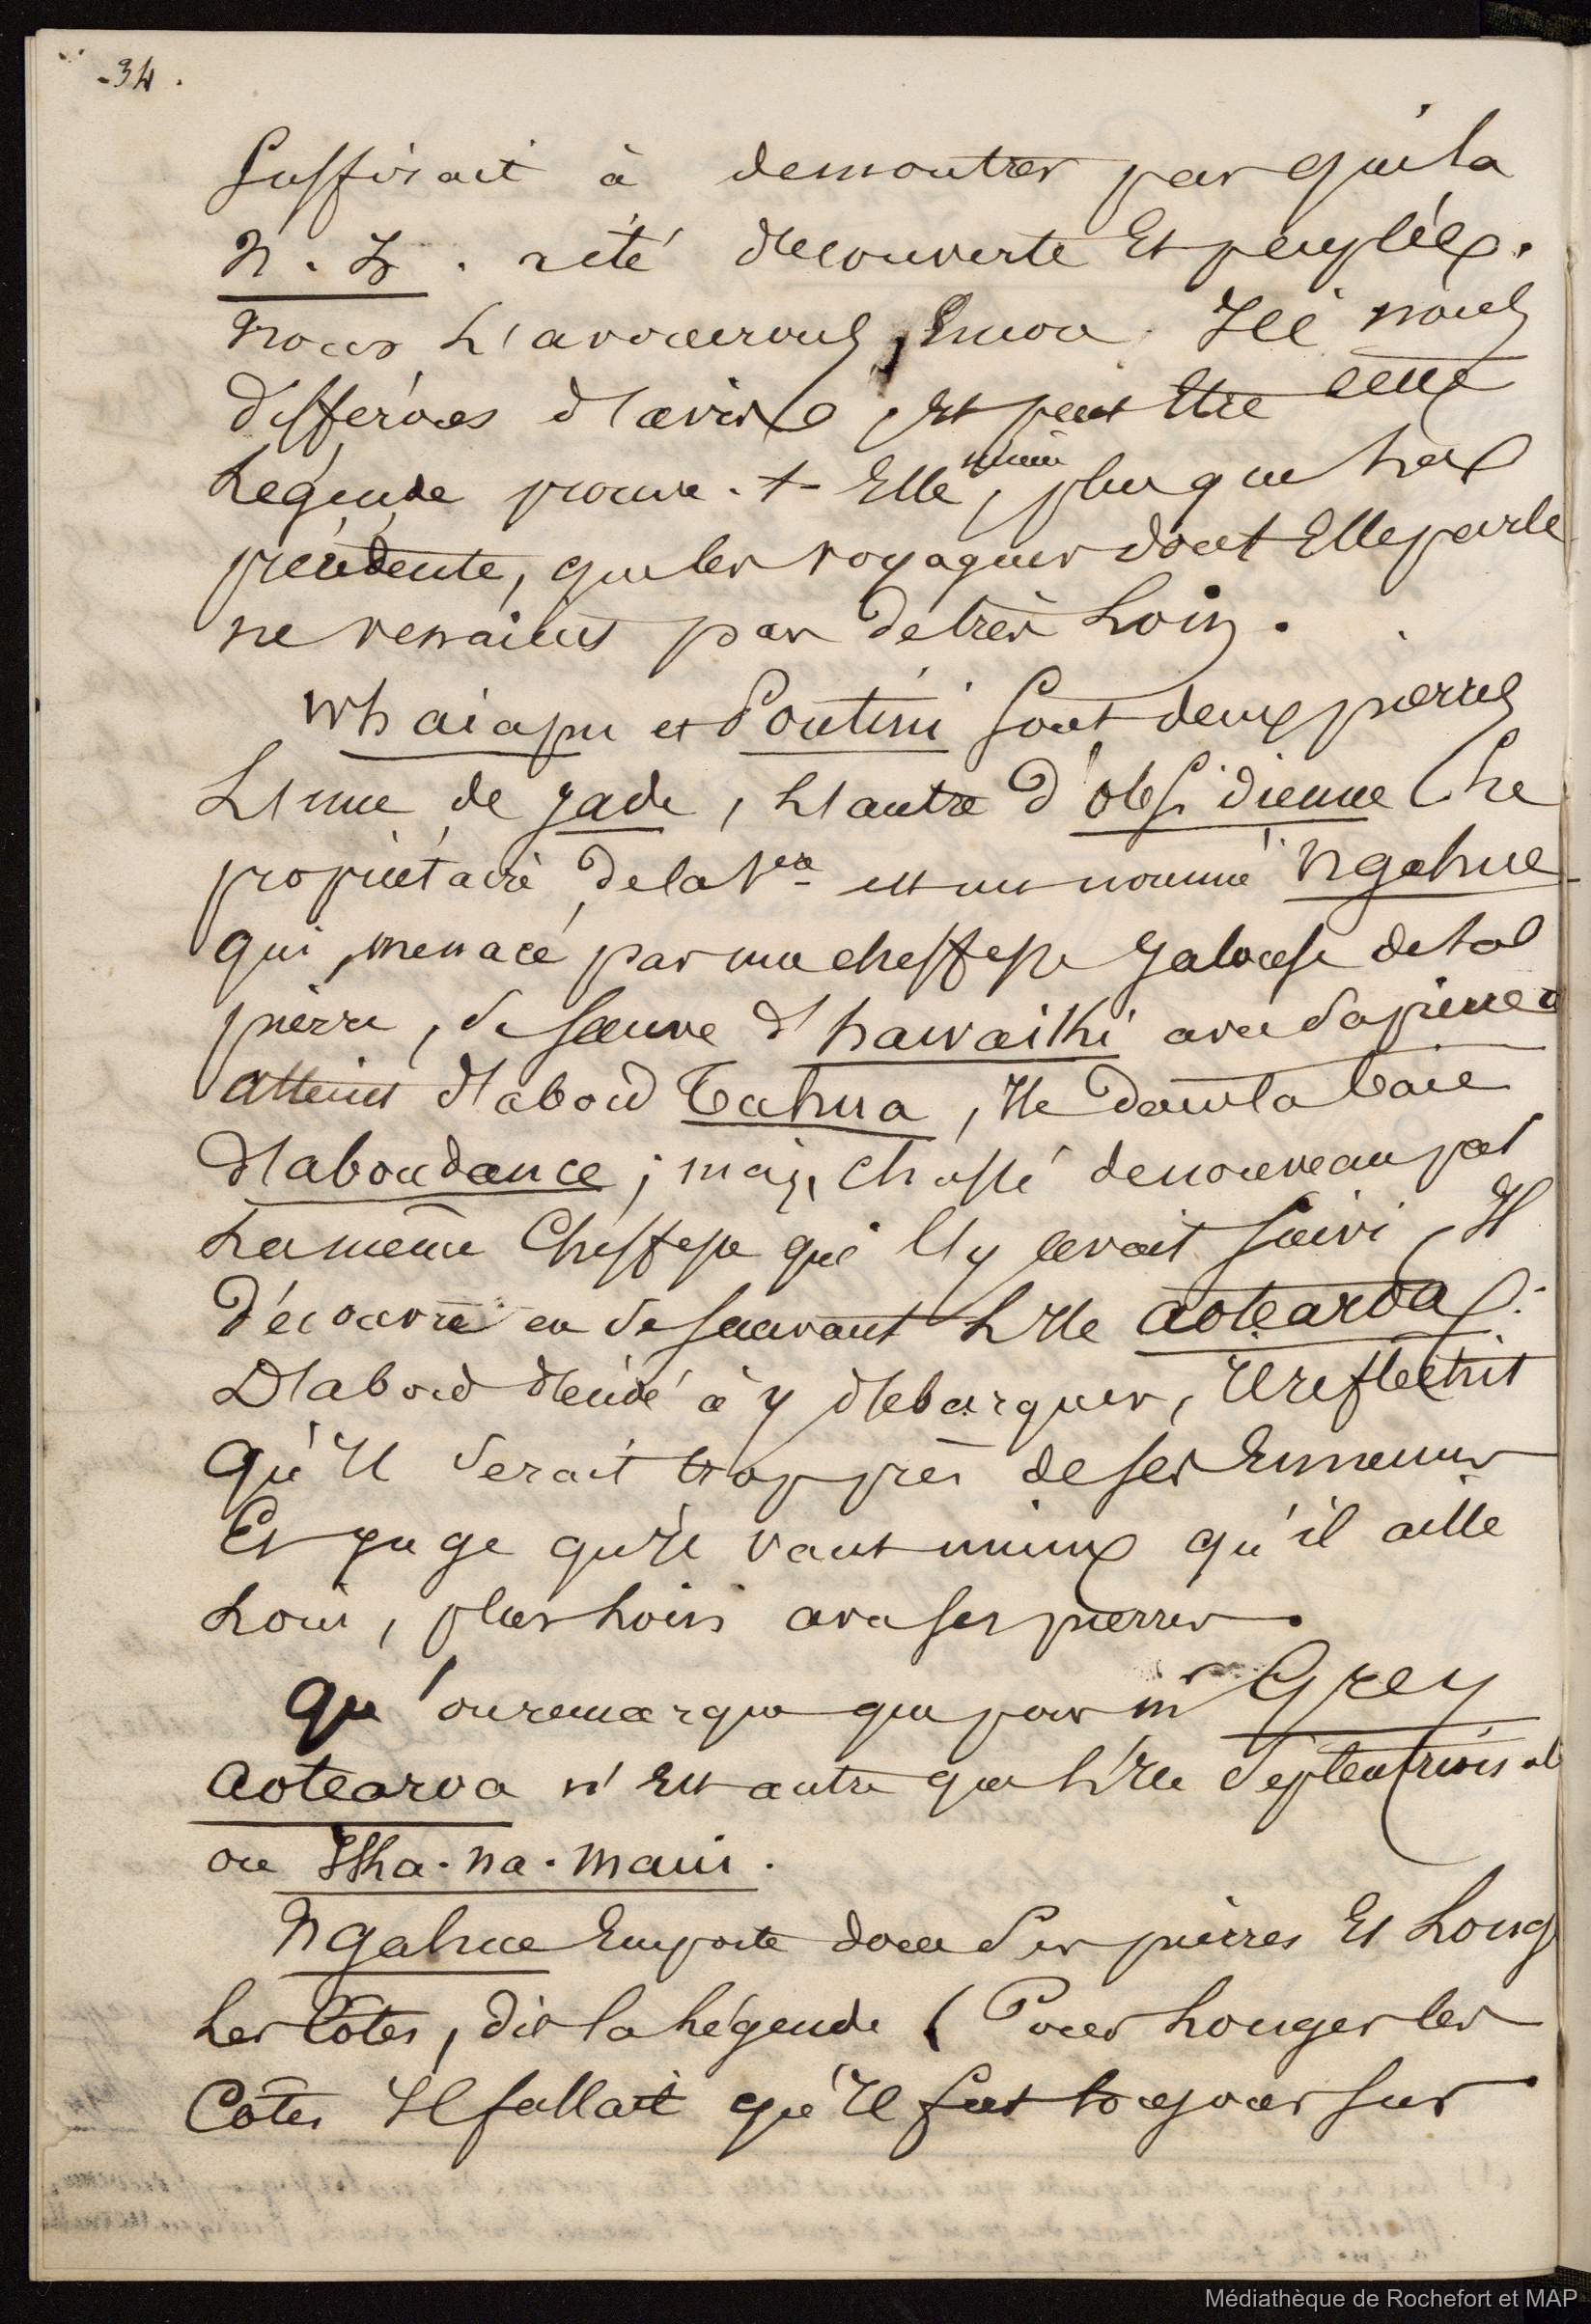 - 34 .
Suffirait à demontrer par qui la
N . Z . a été découverte Et peuplée.
nous L'avouerons, nous Ici nous
différons d'avis, Et peut Etre cette
Légende prouve-t-Elle mieux, plus que La
précédente, que les voyageurs dont Elle parle
ne venaient pas de très Loin.
Whaiapu et Poutini Sont deux pierres
L'une de jade, L'autre d'obsidienne Le
propriétaire de la 1ere est un nommé Ngahue
qui, menacé par une cheffesse jalouse de Sa
pierre, Se Sauve d'hawaiki avec Sa pierre
atteint d'abord Tuhua, Ile dans la baie
d'abondance ; mais, chassé de nouveau par
La même Cheffesse qui l'y avait Suivi, Il
découvre en Se Sauvant L'Ile aotearoa.
D'abord décidé à y débarquer, Il réfléchit
qu'Il Serait trop près de Ses Ennemis
Et juge qu'Il vaut mieux qu'il aille
Loin, plus Loin avec Ses pierres.
Qu'on remarque que pour Mr Grey
aotearoa n'Est autre que L'Ile Septentrional
ou Ika . na . maui .
Ngahue Emporte donc Ses pierres Et Longe
Les Côtes, dit la Légende ( Pour Longer les
Côtes Il fallait qu'Il fut toujours Sur
Médiathèque de Rochefort et MAP